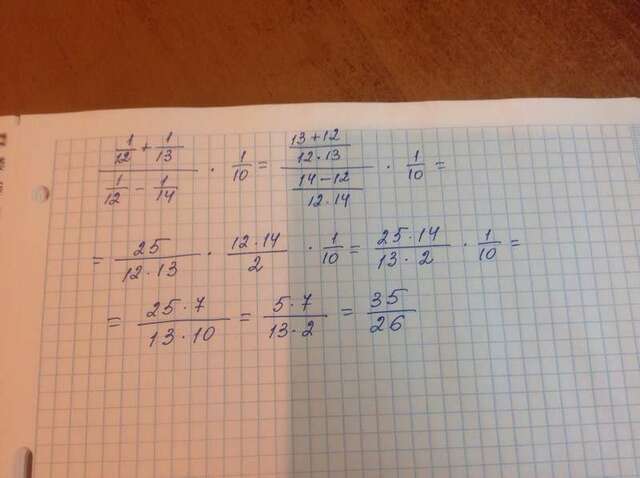 (1/12 + 1/13)/(1/12 − 1/14) · 1/10 = ((13+12)/(12·13))/((14−12)/(12·14)) · 1/10 =
= 25/(12·13) · (12·14)/2 · 1/10 = (25·14)/(13·2) · 1/10 =
= (25·7)/(13·10) = (5·7)/(13·2) = 35/26